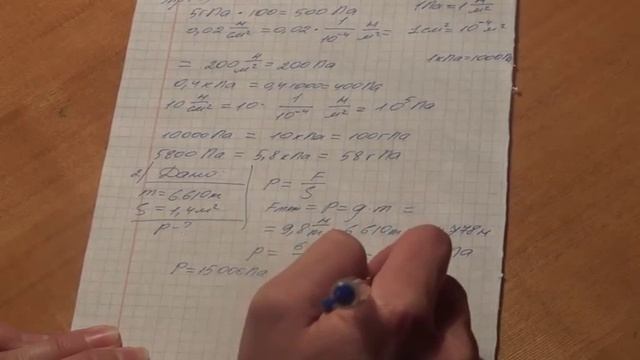 5гПа · 100 = 500 Па
1Па = 1 Н/м²
0,02 Н/см² = 0,02 · 1/10⁻⁴ Н/м² =
1см² = 10⁻⁴ м²
= 200 Н/м² = 200 Па
1кПа = 1000Па
0,4 кПа = 0,4·1000 = 400Па
10 Н/см² = 10 · 1/10⁻⁴ Н/м² = 10⁵ Па
10000 Па = 10 кПа = 100 гПа
5800 Па = 5,8 кПа = 58 гПа
2) Дано:
m = 6610т
S = 1,4 м²
p - ?
P = F/S
= P = g·m =
= 9,8 6610т 778 Н
P = 6
P = 15006 Па